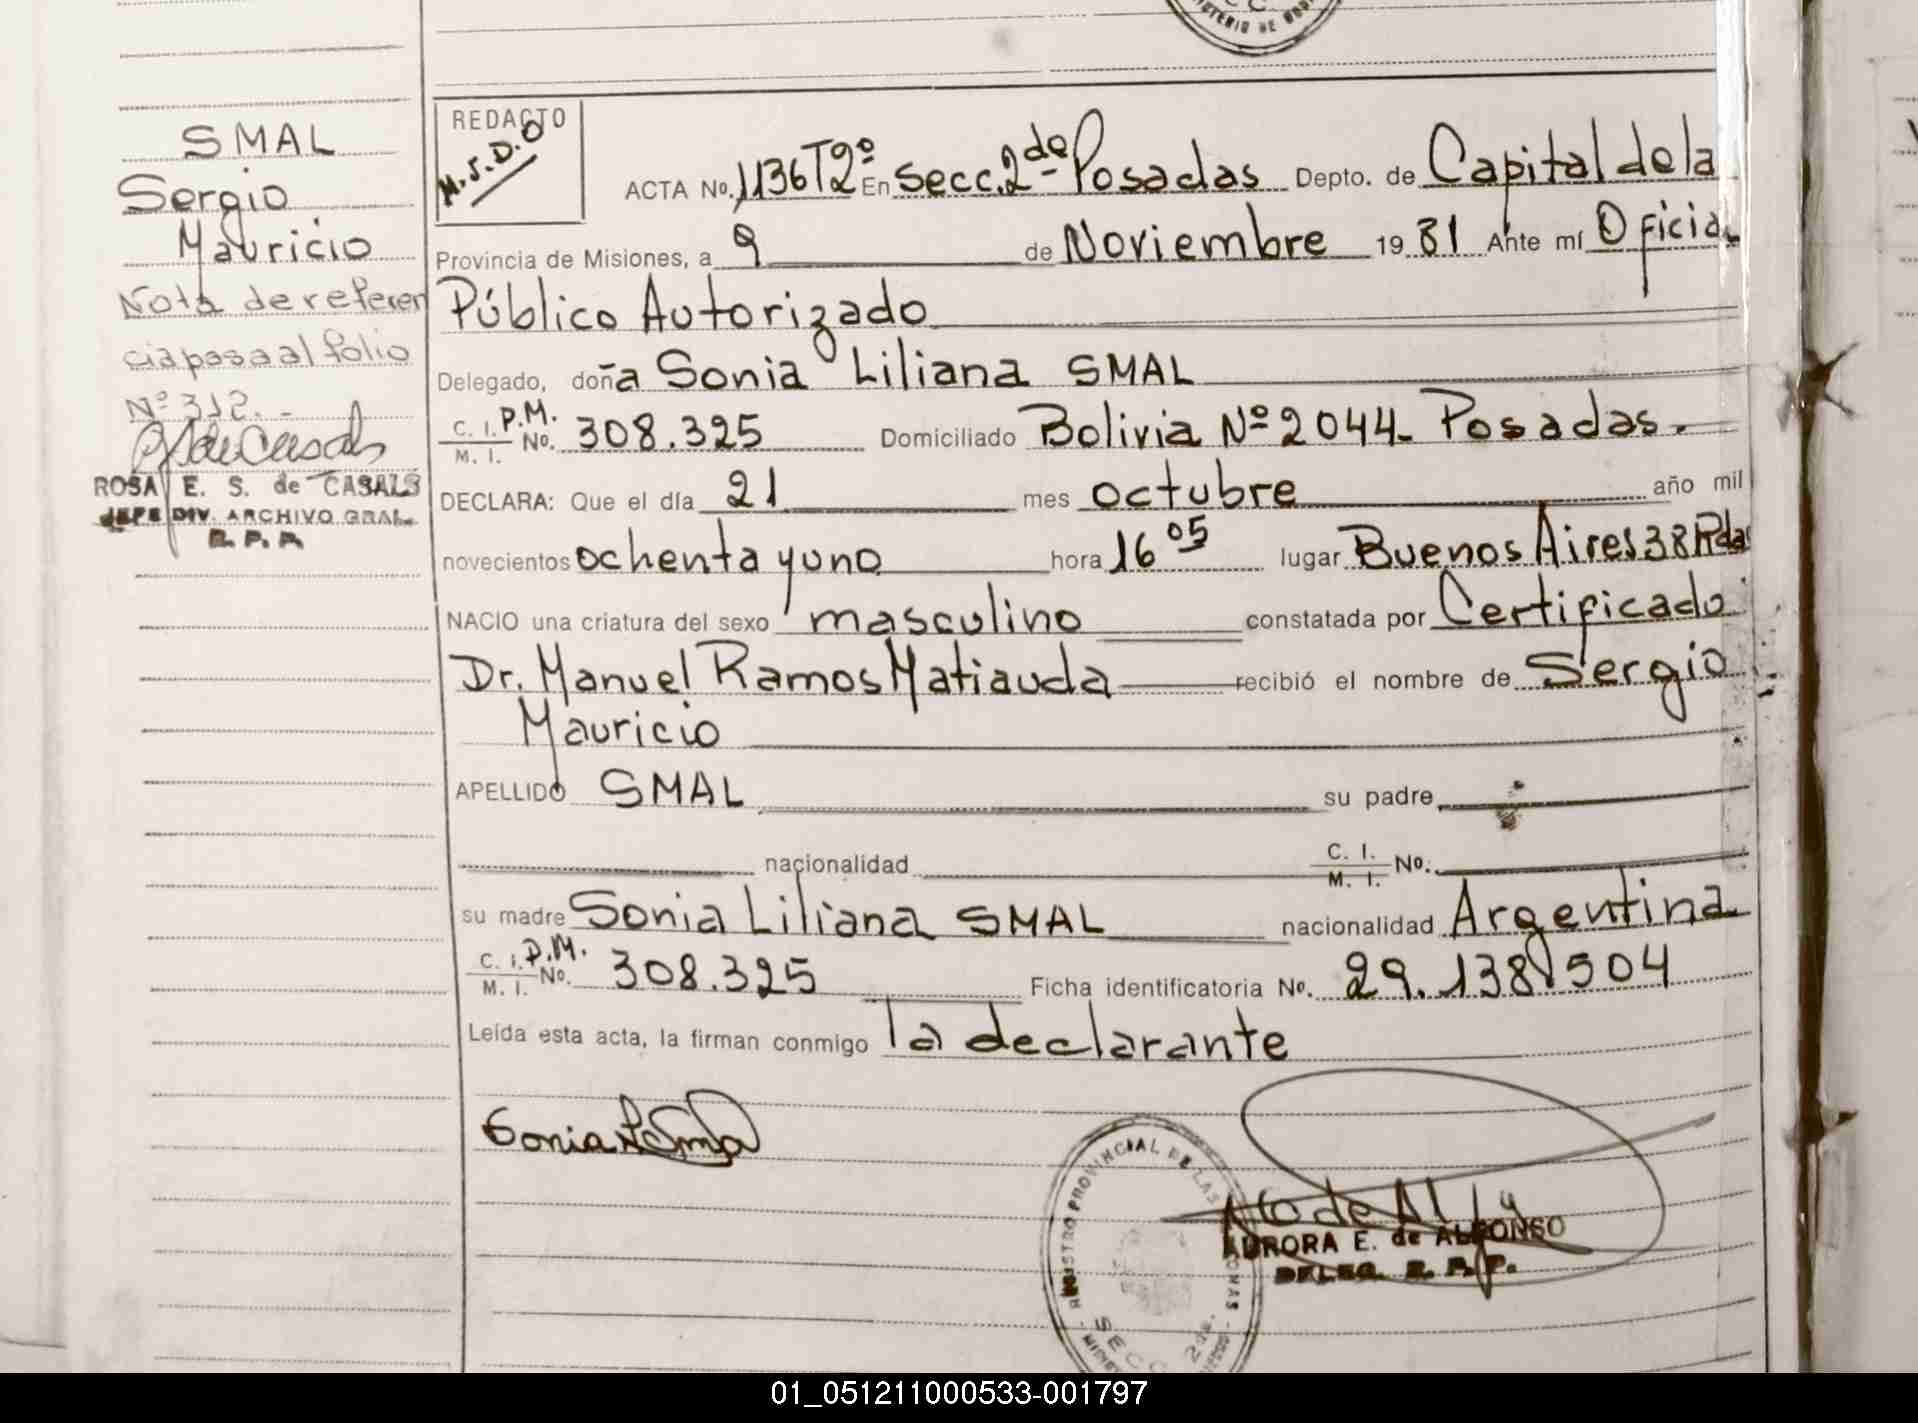 SMAL
Sergio
Mauricio
Nota de referen
cia pasa al folio
Nº 312.-
ROSA E. S. de CASALS
JEFE DIV. ARCHIVO GRAL.
R. P. P.
REDACTO
M.S.D.O
ACTA No. 1136 T2º En Secc. 2da- Posadas Depto. de Capital de la
Provincia de Misiones, a 9 de Noviembre 1981 Ante mí Oficial
Público Autorizado
Delegado, doña Sonia Liliana SMAL
C. I. P.M. No. 308.325 Domiciliado Bolivia Nº 2044- Posadas.-
M. I.
DECLARA: Que el día 21 mes octubre año mil
novecientos ochenta y uno hora 16 05 lugar Buenos Aires 38 Pdas
NACIO una criatura del sexo masculino constatada por Certificado
Dr. Manuel Ramos Matiauda recibió el nombre de Sergio
Mauricio
APELLIDO SMAL su padre
nacionalidad C. I. No.
M. I.
su madre Sonia Liliana SMAL nacionalidad Argentina
C. I. P.M. No. 308.325 Ficha identificatoria No. 29.138.504
M. I.
Leída esta acta, la firman conmigo la declarante
Sonia L Smal
REGISTRO PROVINCIAL DE LAS PERSONAS
SECC. 2da.
AURORA E. de ALFONSO
DELEG. R. P. P.
01_051211000533-001797